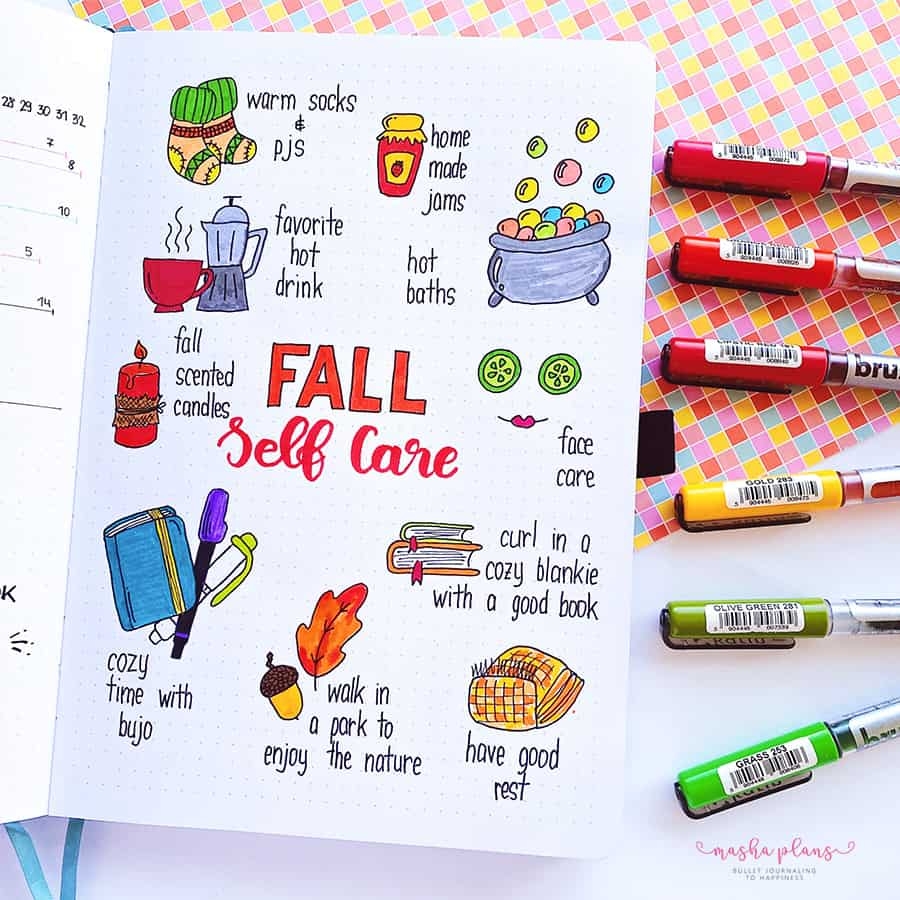 28 29 30 31 32
7
8
10
5
14
warm socks
&
pjs
home
made
jams
favorite
hot
drink
hot
baths
fall
scented
candles
FALL
Self Care
face
care
cozy
time with
bujo
curl in a
cozy blankie
with a good book
walk in
a park to
enjoy the nature
have good
rest
GOLD 283
OLIVE GREEN 281
GRASS 253
masha plans
BULLET JOURNALING
TO HAPPINESS